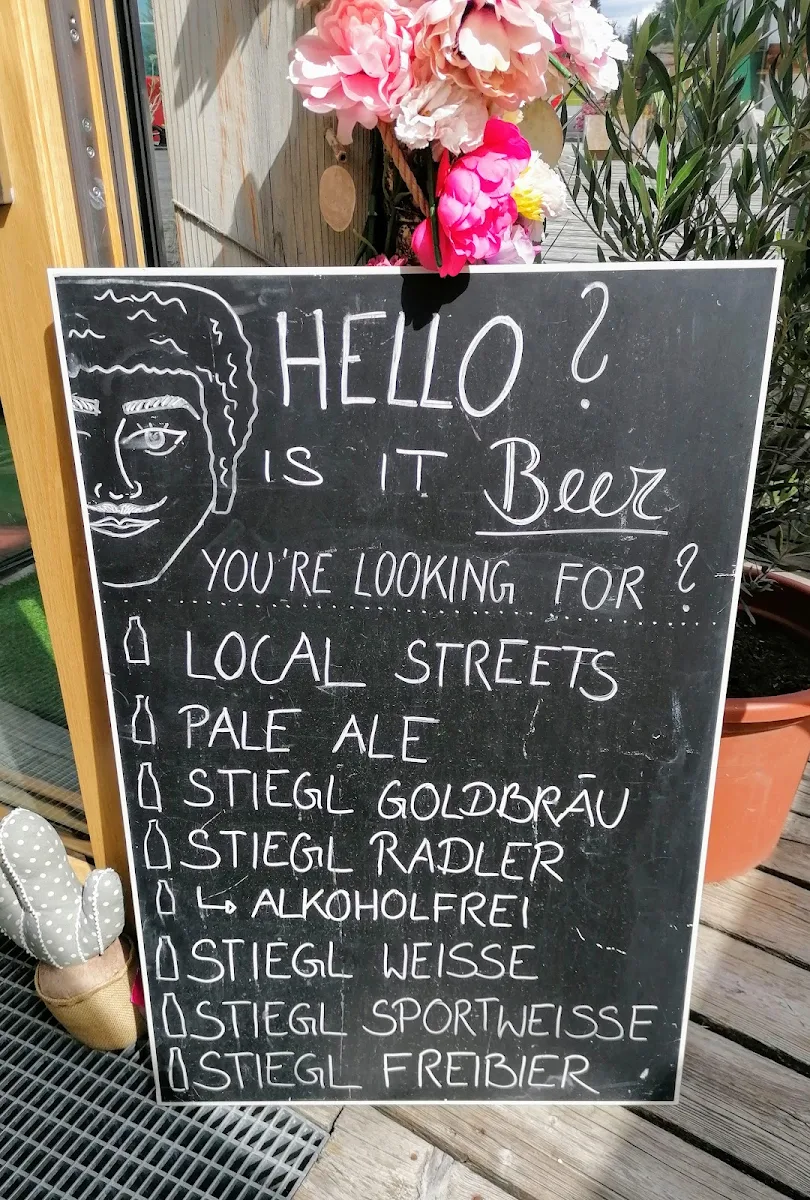 HELLO ?
IS IT Beer
YOU'RE LOOKING FOR ?
LOCAL STREETS
PALE ALE
STIEGL GOLDBRÄU
STIEGL RADLER
↳ ALKOHOLFREI
STIEGL WEISSE
STIEGL SPORTWEISSE
STIEGL FREIBIER